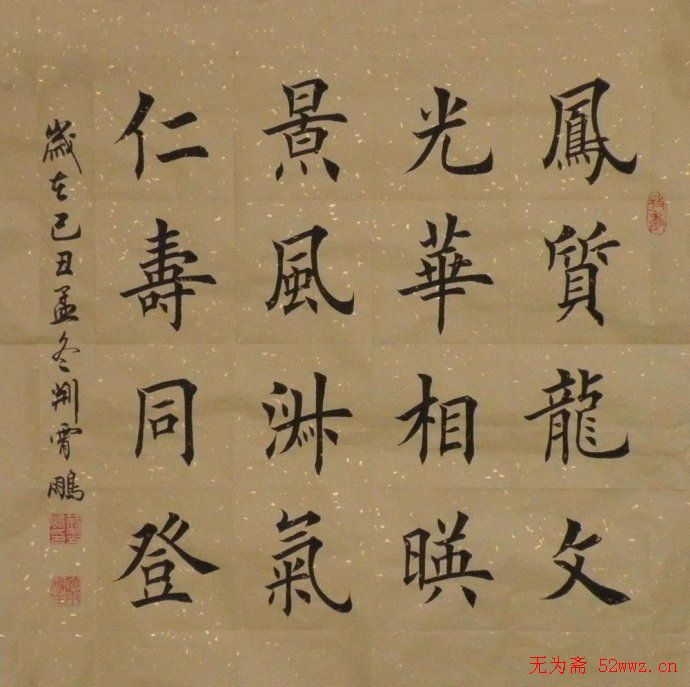 鳳質龍文
光華相暎
景風淑氣
仁壽同登
歲在己丑孟冬荆霄鵬
无为斋 52wwz.cn